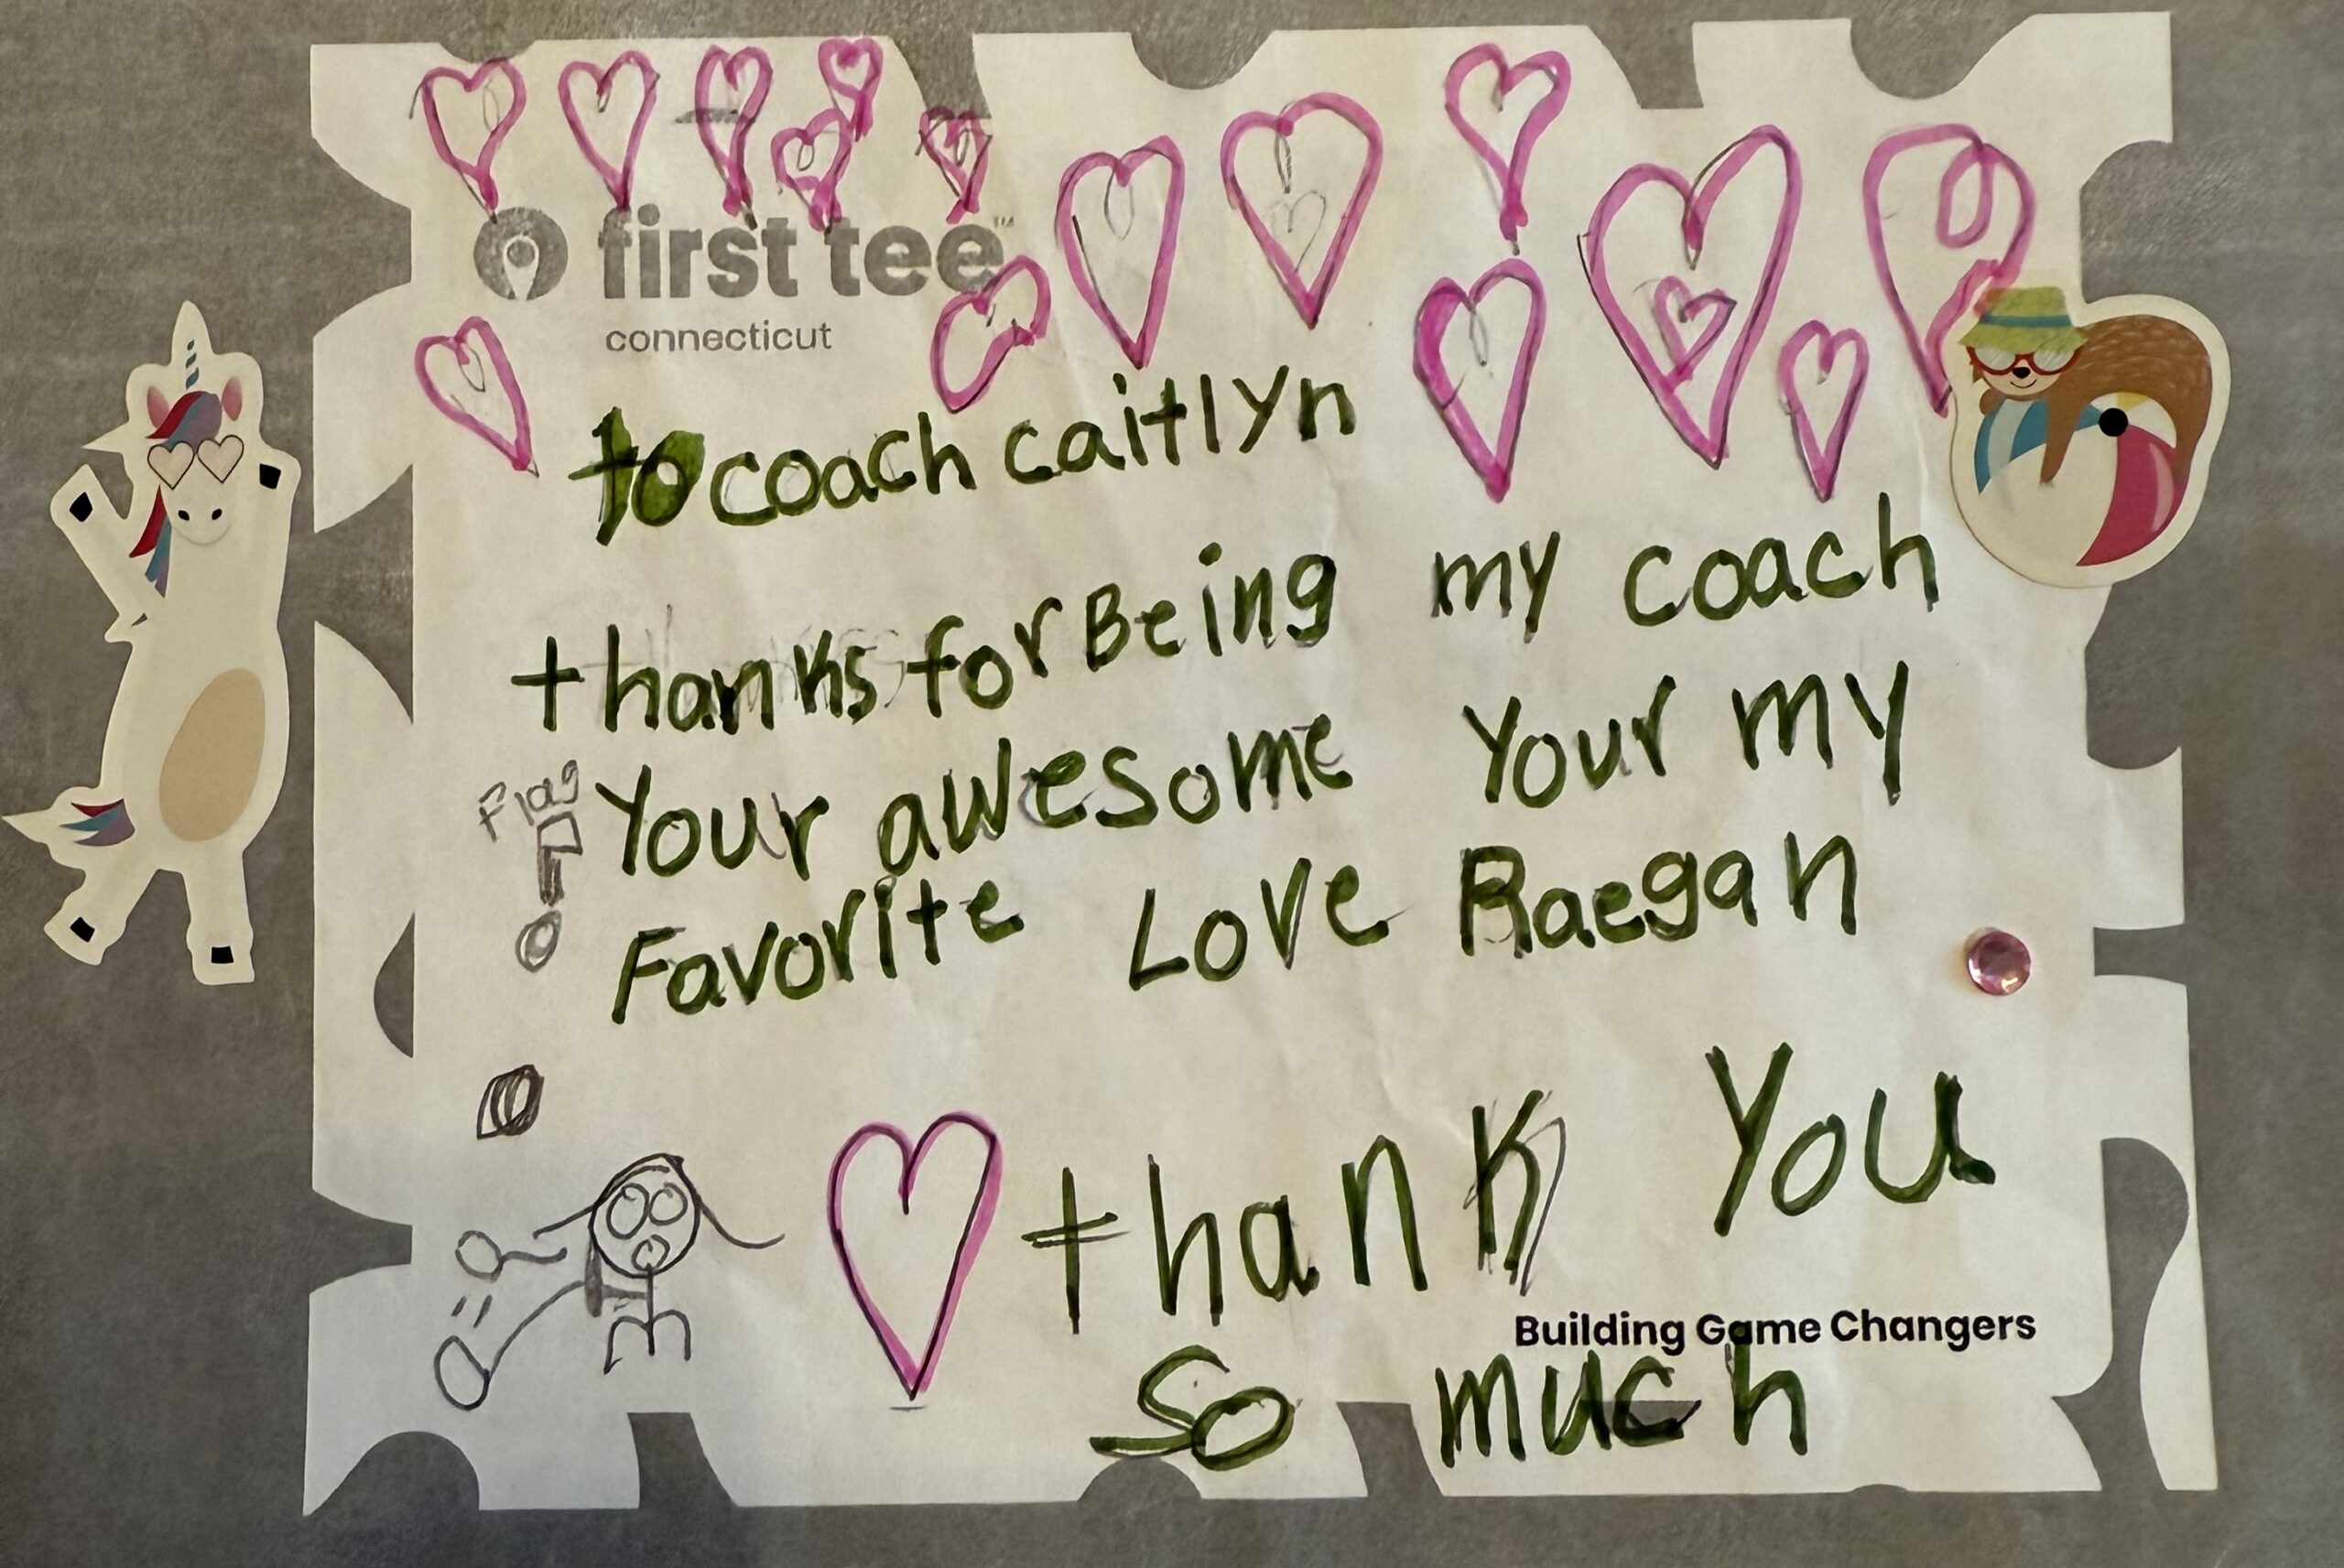 first tee™
connecticut
to coach caitlyn
thanks for Being my coach
Flag
Your awesome Your my
Favorite Love Raegan
thank You
Building Game Changers
so much